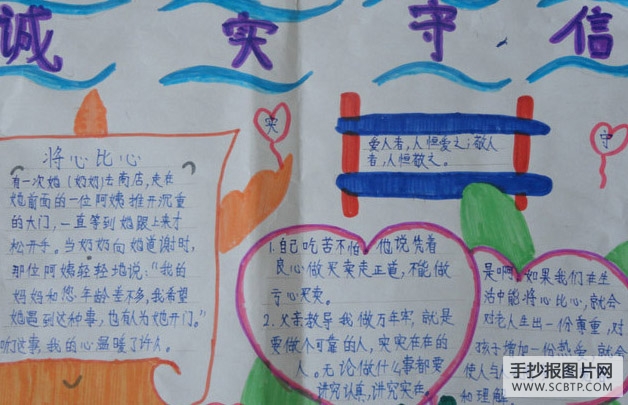 诚 实 守 信
实
守
爱人者,人恒爱之;敬人
者,人恒敬之。
将心比心
有一次她(奶奶)去商店,走在
她前面的一位阿姨推开沉重
的大门,一直等到她跟上来才
松开手。当奶奶向她道谢时,
那位阿姨轻轻地说:“我的
妈妈和您年龄差不多,我希望
她遇到这种事,也有人为她开门。”
听了这事,我的心温暖了许久。
1.自己吃苦不怕,他说凭着
良心做买卖走正道,不能做
亏心买卖。
2.父亲教导我做万年牢,就是
要做个可靠的人,实实在在的
人。无论做什么事都要
讲究认真,讲究实在。
是啊,如果我们在生
活中能将心比心,就会
对老人生出一份尊重,对
孩子增加一份热爱,就会
使人与人
和理解。
手抄报图片网
WWW.SCBTP.COM